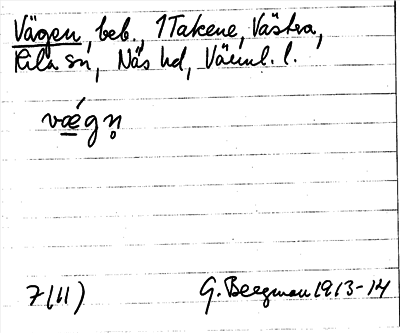 Vägen, beb., 1 Takene, Västra,
Kila sn, Näs hd, Värml. l.
vǽ̱gn̥
7(11)
G. Bergman 1913-14